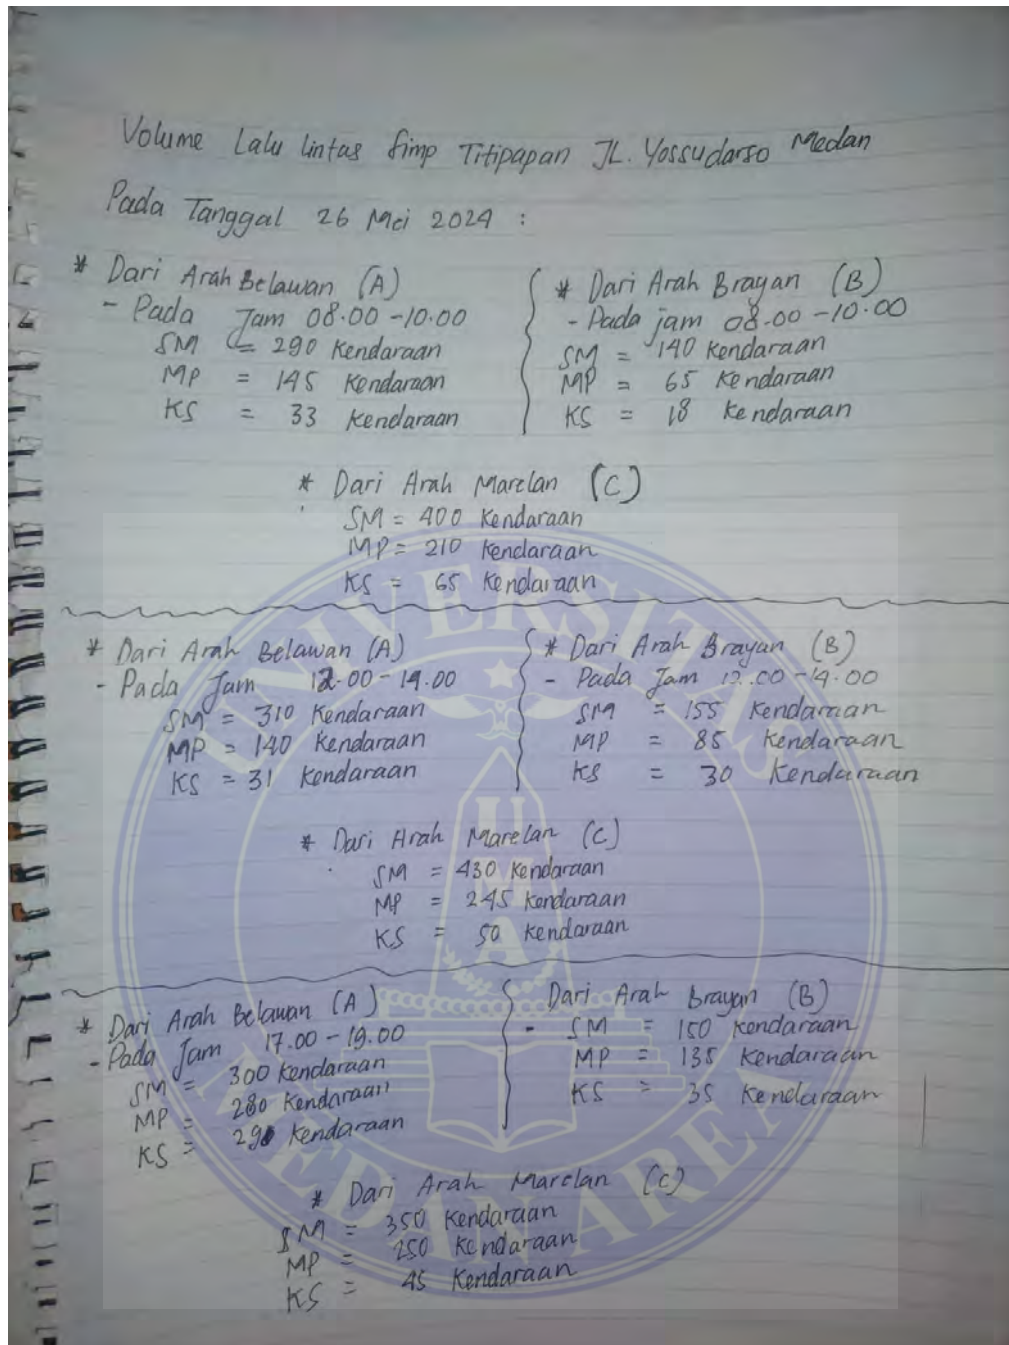 Volume Lalu lintas Simp Titipapan JL. Yossudarso Medan
Pada Tanggal 26 Mei 2024 :
* Dari Arah Belawan (A)
- Pada Jam 08.00 - 10.00
SM = 290 Kendaraan
MP = 145 Kendaraan
KS = 33 Kendaraan
* Dari Arah Brayan (B)
- Pada jam 08.00 - 10.00
SM = 140 Kendaraan
MP = 65 Kendaraan
KS = 18 Kendaraan
* Dari Arah Marelan (C)
SM = 400 Kendaraan
MP = 210 Kendaraan
KS = 65 Kendaraan
* Dari Arah Belawan (A)
- Pada Jam 12.00 - 14.00
SM = 310 Kendaraan
MP = 140 Kendaraan
KS = 31 Kendaraan
* Dari Arah Brayan (B)
- Pada Jam 12.00 - 14.00
SM = 155 Kendaraan
MP = 85 Kendaraan
KS = 30 Kendaraan
* Dari Arah Marelan (C)
SM = 430 Kendaraan
MP = 245 Kendaraan
KS = 50 Kendaraan
* Dari Arah Belawan (A)
- Pada Jam 17.00 - 19.00
SM = 300 Kendaraan
MP = 280 Kendaraan
KS = Kendaraan
Dari Arah Brayan (B)
- SM = 150 Kendaraan
MP = 135 Kendaraan
KS = 35 Kendaraan
* Dari Arah Marelan (C)
SM = 350 Kendaraan
MP = 250 Kendaraan
KS = 45 Kendaraan
UNIVERSITAS
UMA
MEDAN AREA